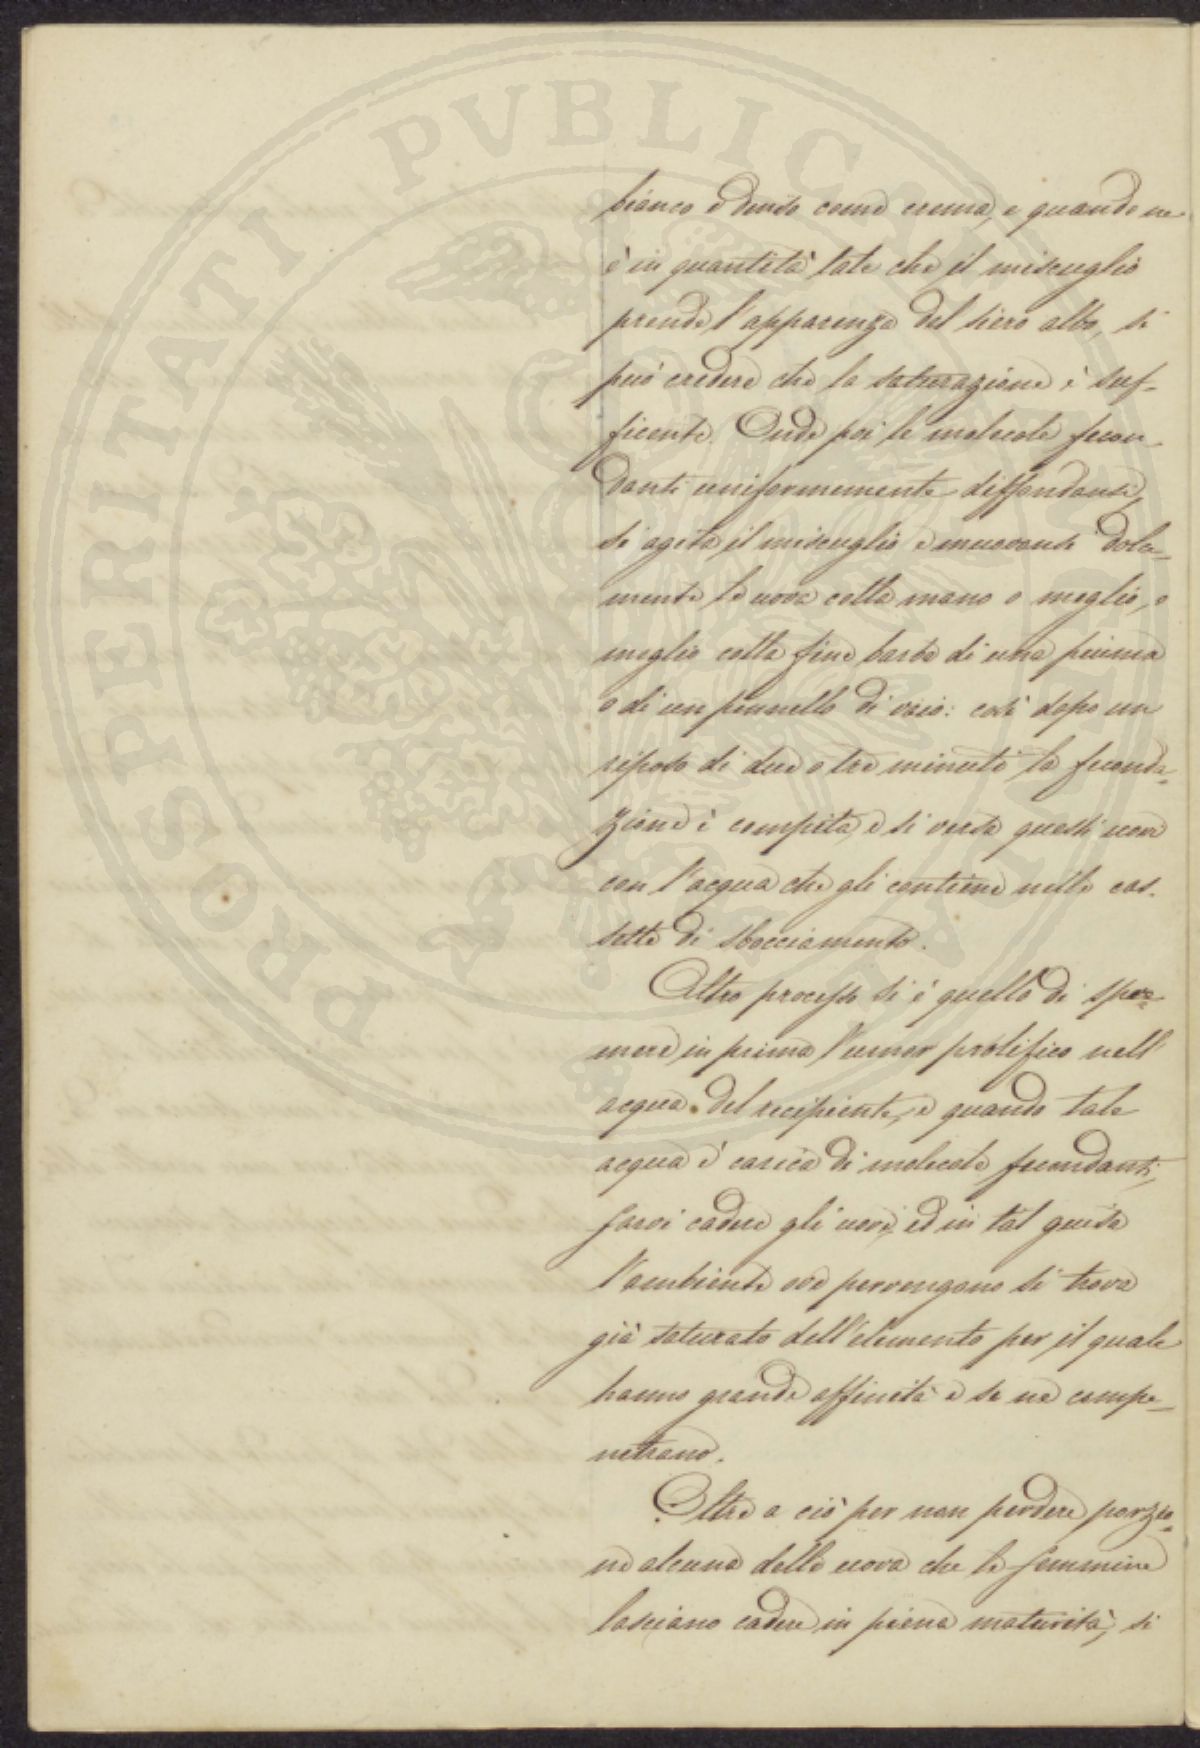 bianco e denso come crema, e quando ne
è in quantità tale che il miscuglio
prende l'apparenza del siero albo, si
può credere che la saturazione è suf-
ficente. Onde poi le molecole fecon-
danti uniformemente diffondansi,
si agita il miscuglio e muovonsi dolce-
mente le uova colla mano o meglio, o
meglio colla fine barbe di una piuma
o di un pennello di vaio: così dopo un
riposo di due o tre minuti la feconda-
zione è compita, e si versa questi uovi
con l'acqua che gli contiene nelle cas-
sette di sbocciamento.
Altro processo si è quello di spre-
mere in prima l'umor prolifico nell'
acqua del recipiente, e quando tale
acqua è carica di molecole fecondanti,
farvi cadere gli uovi, ed in tal guisa
l'ambiente ove pervengono si trova
già saturato dell'elemento per il quale
hanno grande affinità e se ne compe-
netrano.
Oltre a ciò per non perdere porzio-
ne alcuna delle uova che le femmine
lasciano cadere in piena maturità, si
PROSPERITATI PVBLICAE